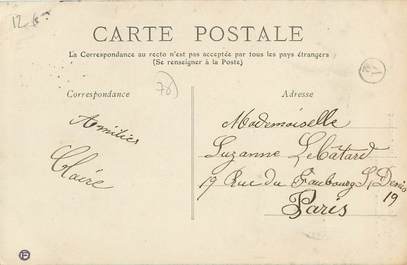 12.
CARTE POSTALE
La Correspondance au recto n'est pas acceptée par tous les pays étrangers
(Se renseigner à la Poste)
Correspondance
78
Adresse
Amitiés
Claire
Mademoiselle
Suzanne LeBâtard
19 Rue du Faubourg St Denis
19
Paris